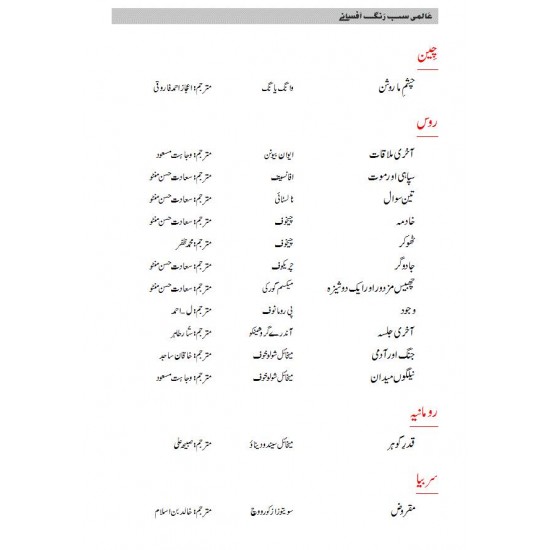 عالمی سب رنگ افسانے
چین
چشمِ ما روشن وانگ یانگ مترجم: اعجاز احمد فاروقی
روس
آخری ملاقات ایوان بیونن مترجم: وجاہت مسعود
سپاہی اور موت افانسیف مترجم: سعادت حسن منٹو
تین سوال ٹالسٹائی مترجم: سعادت حسن منٹو
خادمہ چیخوف مترجم: سعادت حسن منٹو
ٹھوکر چیخوف مترجم: محمد ظفر
جادوگر چریکوف مترجم: سعادت حسن منٹو
چھبیس مزدور اور ایک دوشیزہ میکسم گورکی مترجم: سعادت حسن منٹو
وجود پی رومانوف مترجم: ل۔احمد
آخری جلسہ آندرے گروشینکو مترجم: ستار طاہر
جنگ اور آدمی میخائل شولوخوف مترجم: خاقان ساجد
نیلگوں میدان میخائل شولوخوف مترجم: وجاہت مسعود
رومانیہ
قدرِ گوہر میخائل سیندودیناؤ مترجم: صبیحہ علی
سربیا
مقروض سویتوزار کورووچ مترجم: خالد بن اسلام